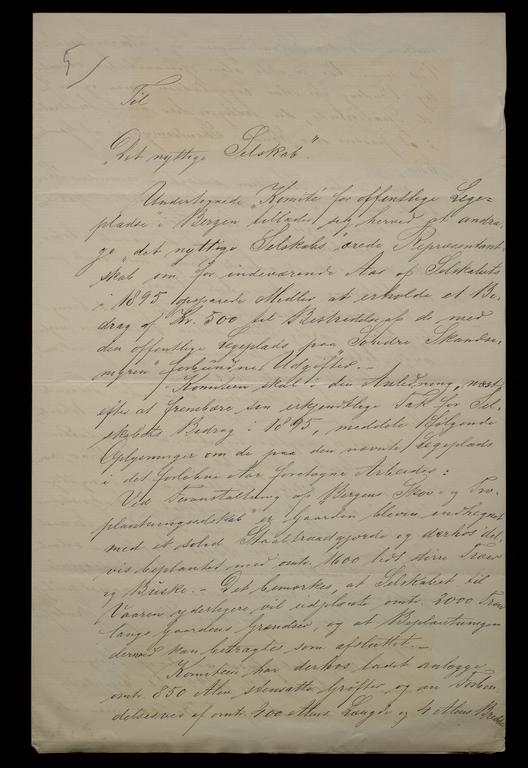 5/
Til
„Det nyttige Selskab".
Undertegnede „Komité for offentlige Lege-
pladse" i Bergen tillader sig herved at andra-
ge „det nyttige Selskabs" ærede Repræsentant-
skab om, for indeværende Aar af Selskabets
i 1895 opsparede Midler at erholde et Be-
drag af Kr. 500 til Bestridelse af de med
den offentlige Legeplads paa „Søndre Skandse-
myren" forbundne Udgifter.–
Komiteen skal i den Anledning, næst
efter at frembære sin erkjendtlige Tak for Sel-
skabets Bidrag i 1895, meddele følgende
Oplysninger om de paa den nævnte Legeplads
i det forløbne Aar foretagne Arbeider:
Ved Foranstaltning af „Bergens Skov- og Træ-
plantningsselskab" er Gaarden bleven indhegnet
med et solid Staaltraadgjærde og derhos del-
vis beplantet med omtr. 1600 lidt større Træer
og Buske.– Det bemærkes, at Selskabet til
Vaaren yderligere vil udplante omtr. 2000 Træer
langs Gaardens Grændser, og at Beplantningen
dermed kan betragtes som afsluttet.–
Komiteen har derhos ladet anlægge
omtr. 850 Alen stensatte Grøfter og en Forbin-
delsesvei af omtr. 200 Alens Længde og 4 Alens Bredde